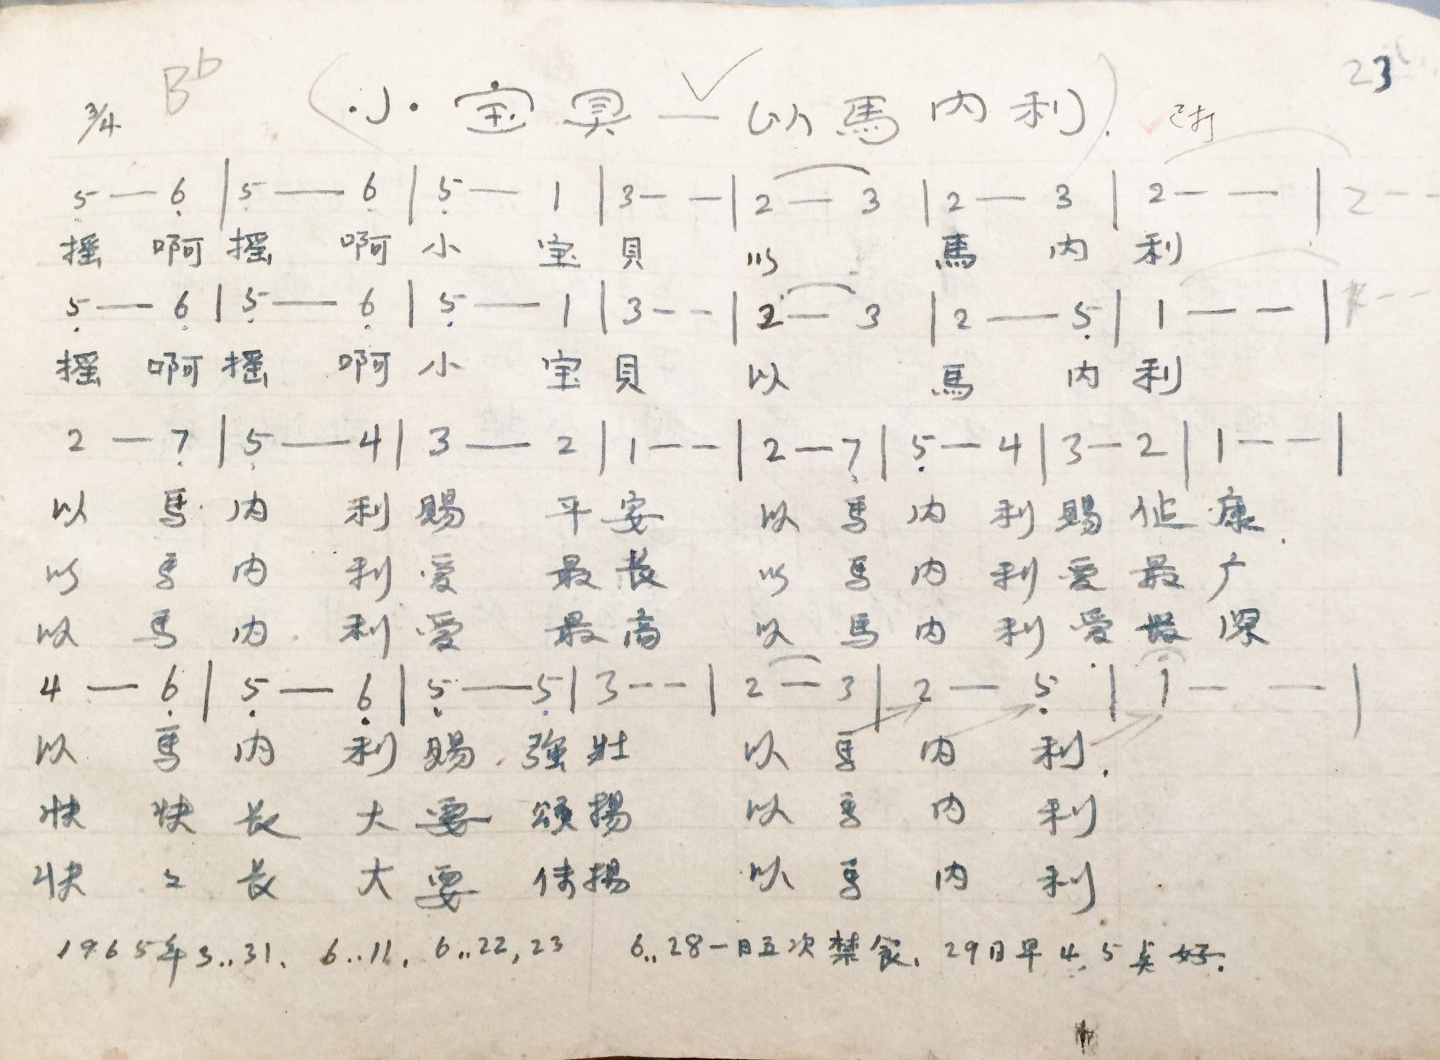 23
3/4 Bb (小宝貝—以馬内利). 已打
5 — 6 | 5 — 6 | 5 — 1 | 3 - - | 2 — 3 | 2 — 3 | 2 - - | 2 - -
摇 啊 摇 啊 小 宝 貝 以 馬 内 利
5 — 6 | 5 — 6 | 5 — 1 | 3 - - | 2 — 3 | 2 — 5 | 1 - - |
摇 啊 摇 啊 小 宝 貝 以 馬 内 利
2 — 7 | 5 — 4 | 3 — 2 | 1 - - | 2 — 7 | 5 — 4 | 3 — 2 | 1 - - |
以 馬 内 利 賜 平 安 以 馬 内 利 賜 康.
以 馬 内 利 爱 最 长 以 馬 内 利 爱 最 广
以 馬 内 利 爱 最 高 以 馬 内 利 爱 最 深
4 — 6 | 5 — 6 | 5 — 5 | 3 - - | 2 — 3 | 2 — 5 | 1 - - |
以 馬 内 利 賜 強 壯 以 馬 内 利.
快 快 长 大 要 頌 揚 以 馬 内 利
快 々 长 大 要 传 揚 以 馬 内 利
1965年3..31. 6..11. 6..22,23 6..28一日五次禁食. 29日早4.5 好.